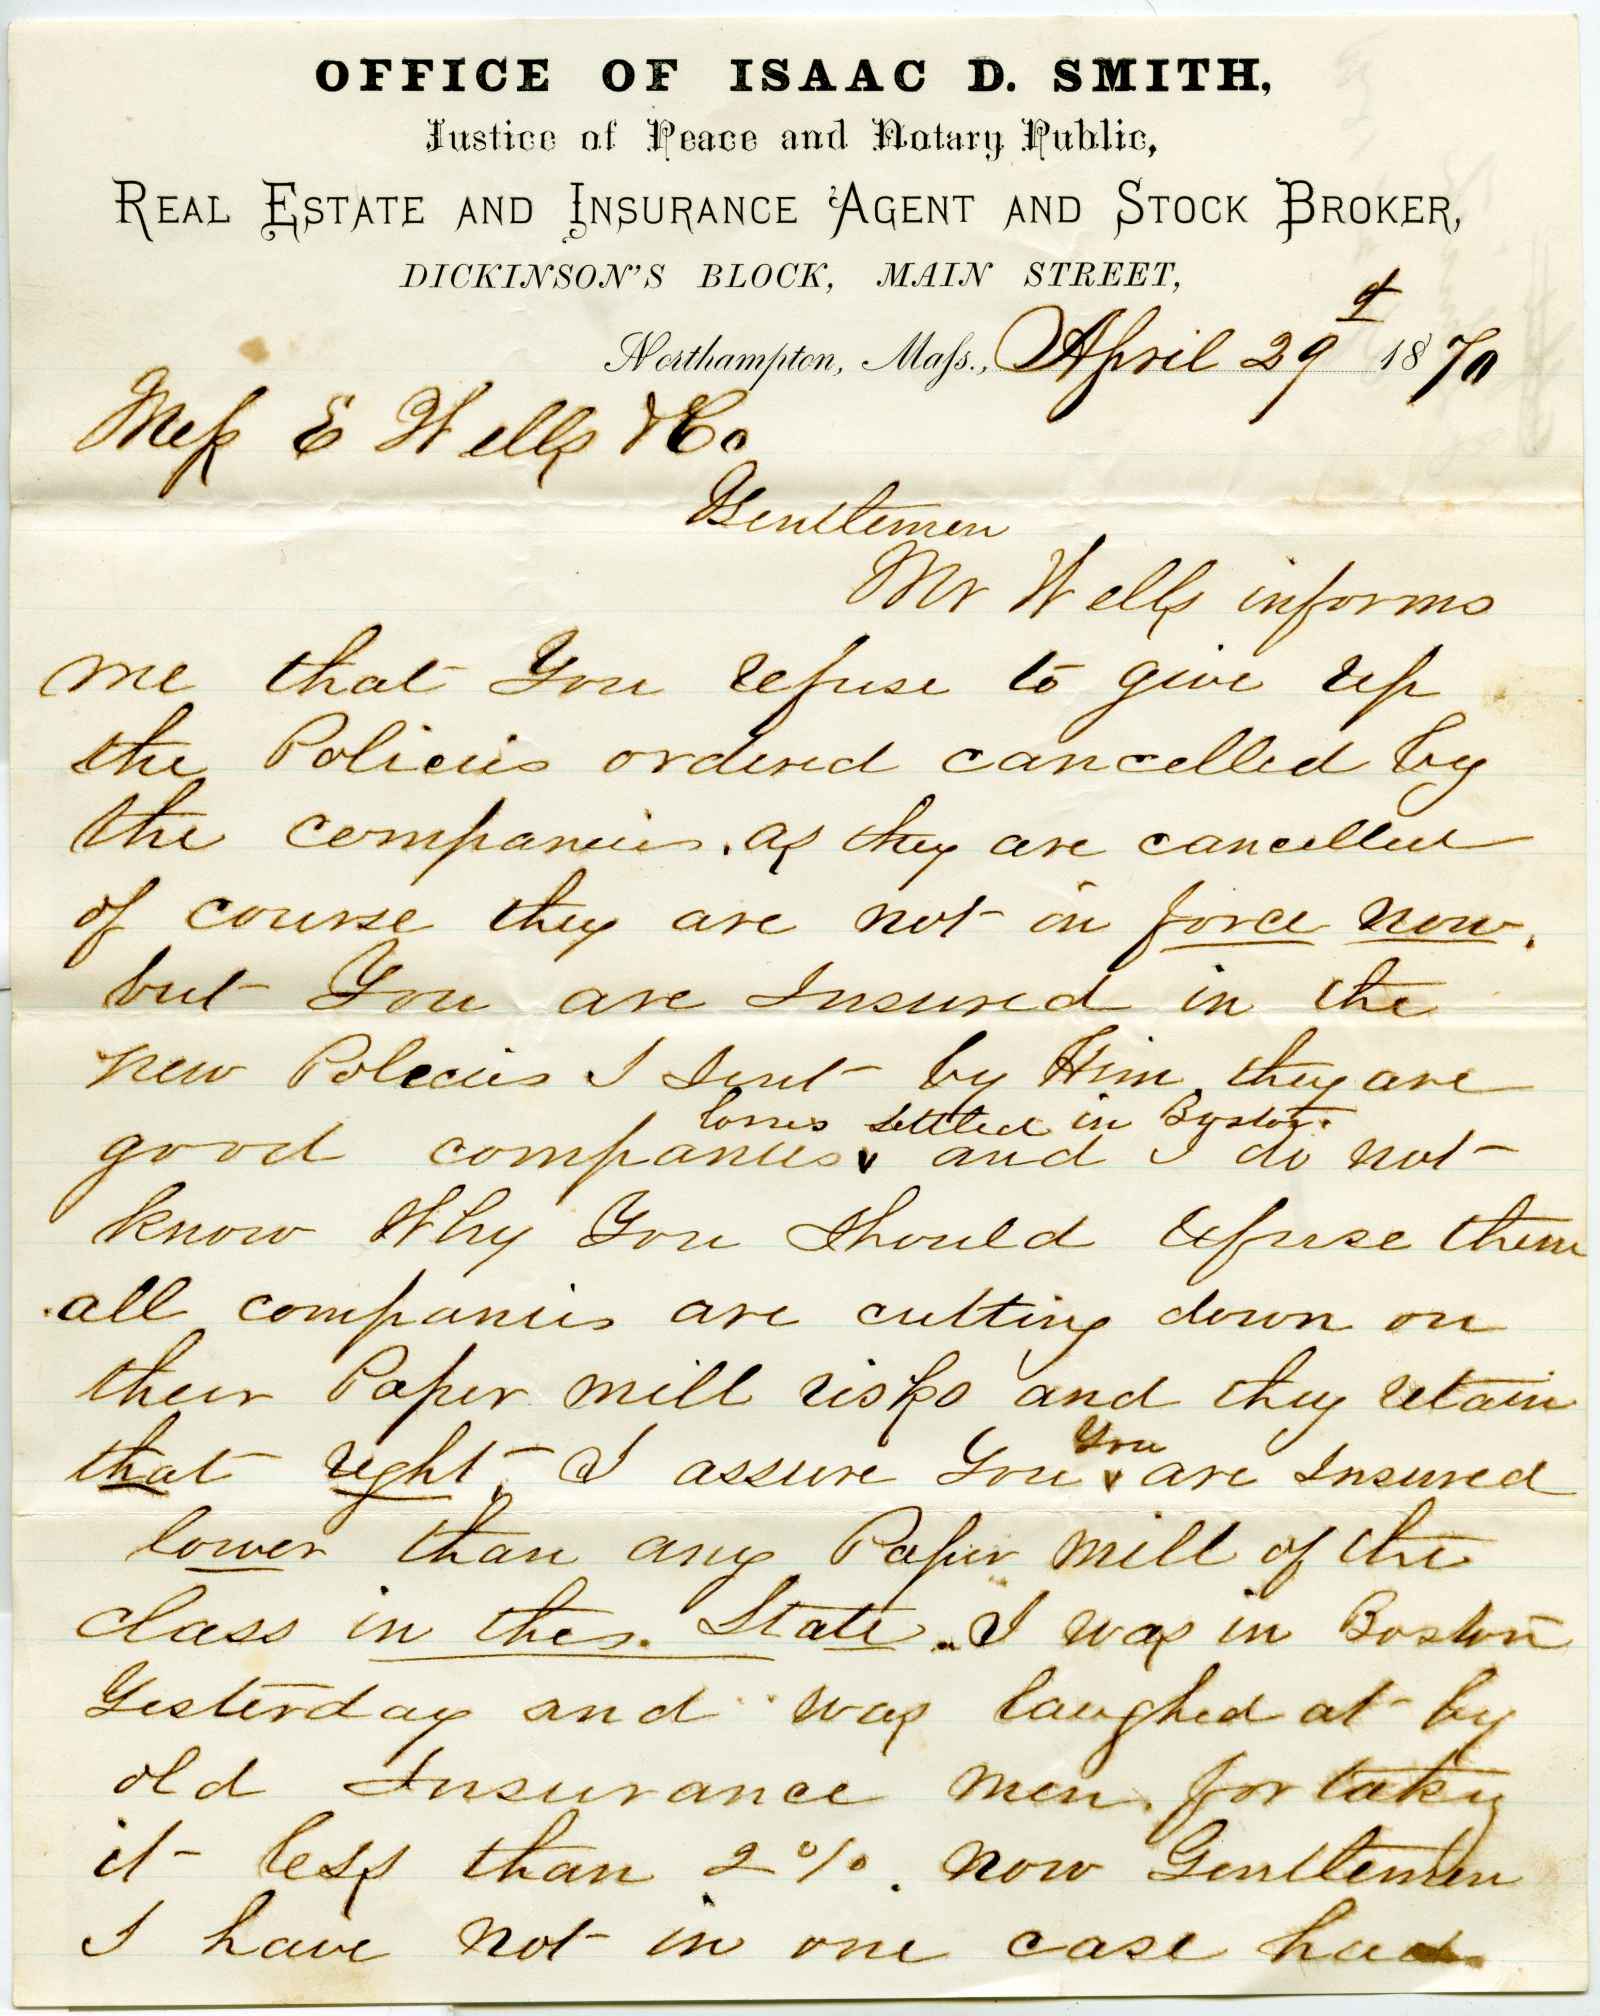 OFFICE OF ISAAC D. SMITH,
Justice of Peace and Notary Public,
REAL ESTATE AND INSURANCE AGENT AND STOCK BROKER,
DICKINSON'S BLOCK, MAIN STREET,
Northampton, Mass., April 29 1870
Mess E Wells & Co
Gentlemen
Mr Wells informs
me that You refuse to give up
the Policies ordered cancelled by
the companies. as they are cancelled
of course they are not in force now.
but You are Insured in the
new Policies I sent by Him, they are
losses settled in Boston.
good companies and I do not
know Why You should refuse them
all companies are cutting down on
their Paper mill risks and they retain
that right, I assure You You are Insured
lower than any Paper mill of the
class in the. State. I was in Boston
Yesterday and was laughed at by
old Insurance men. for taking
it less than 2%. now Gentlemen
I have not in one case had